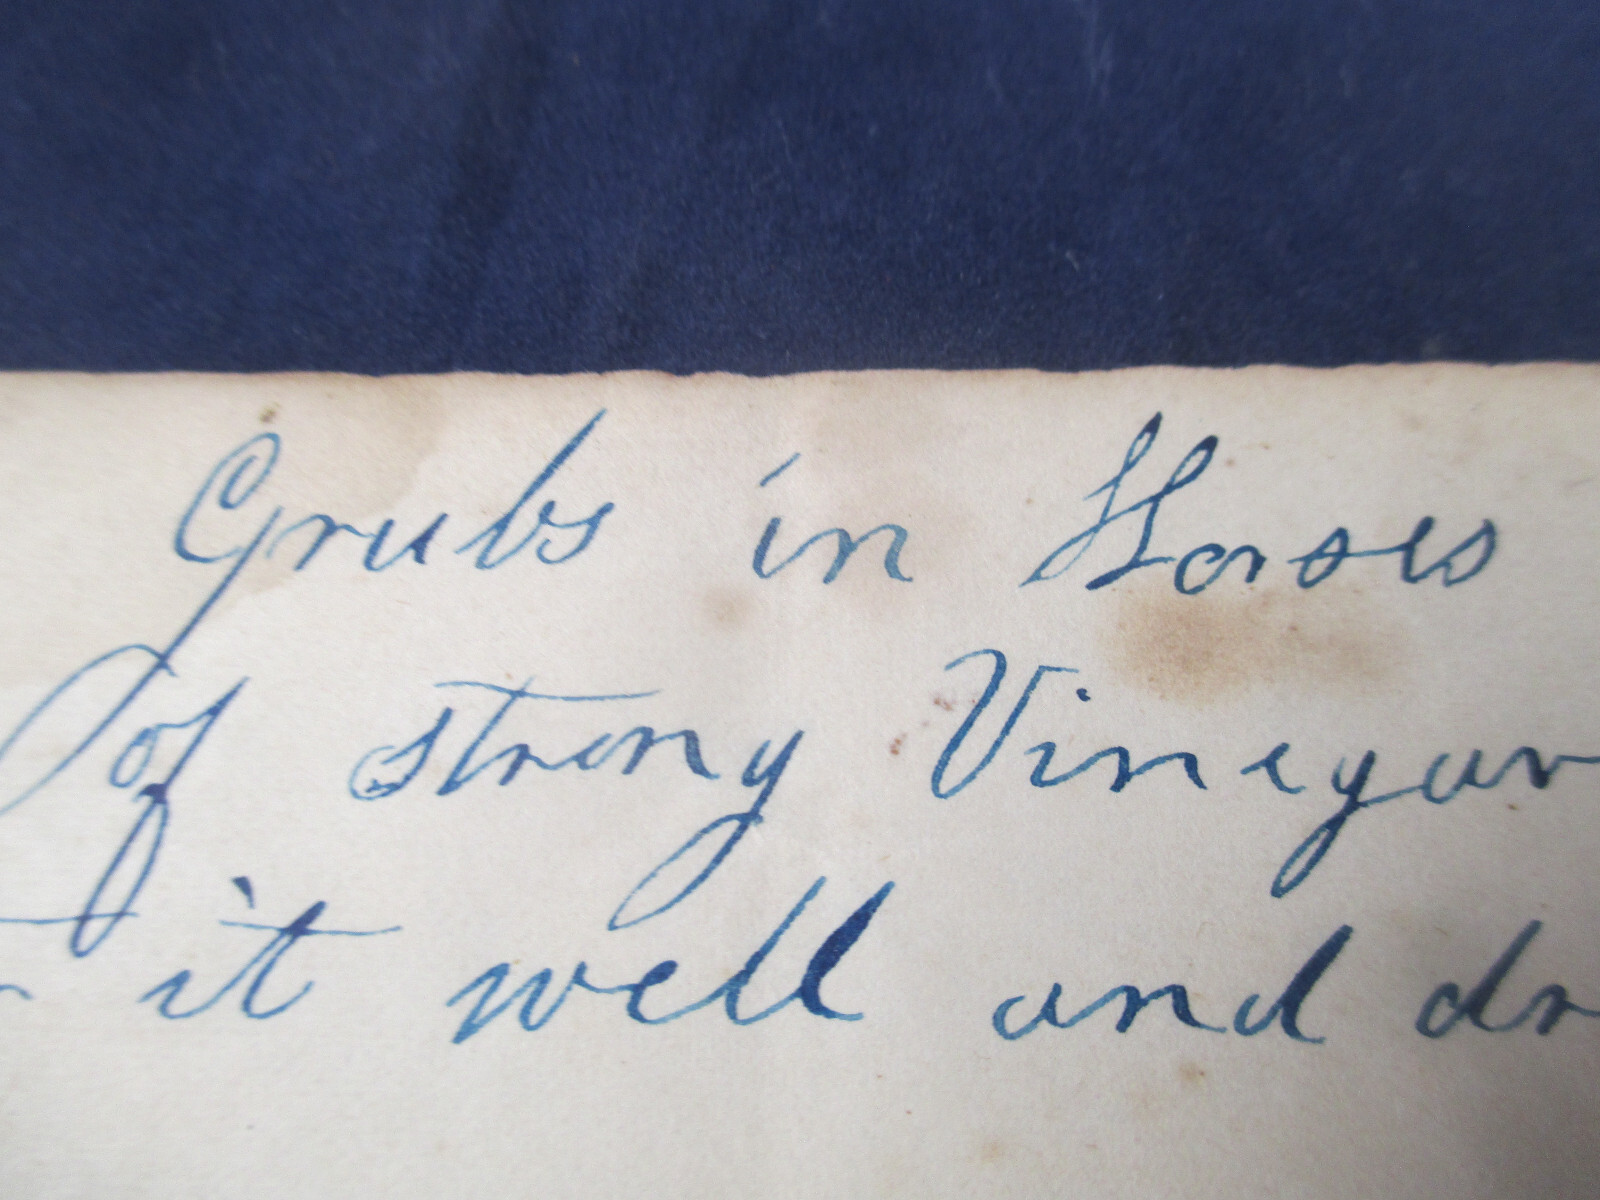 Grubs in Horses
of strong Vinegar
it well and